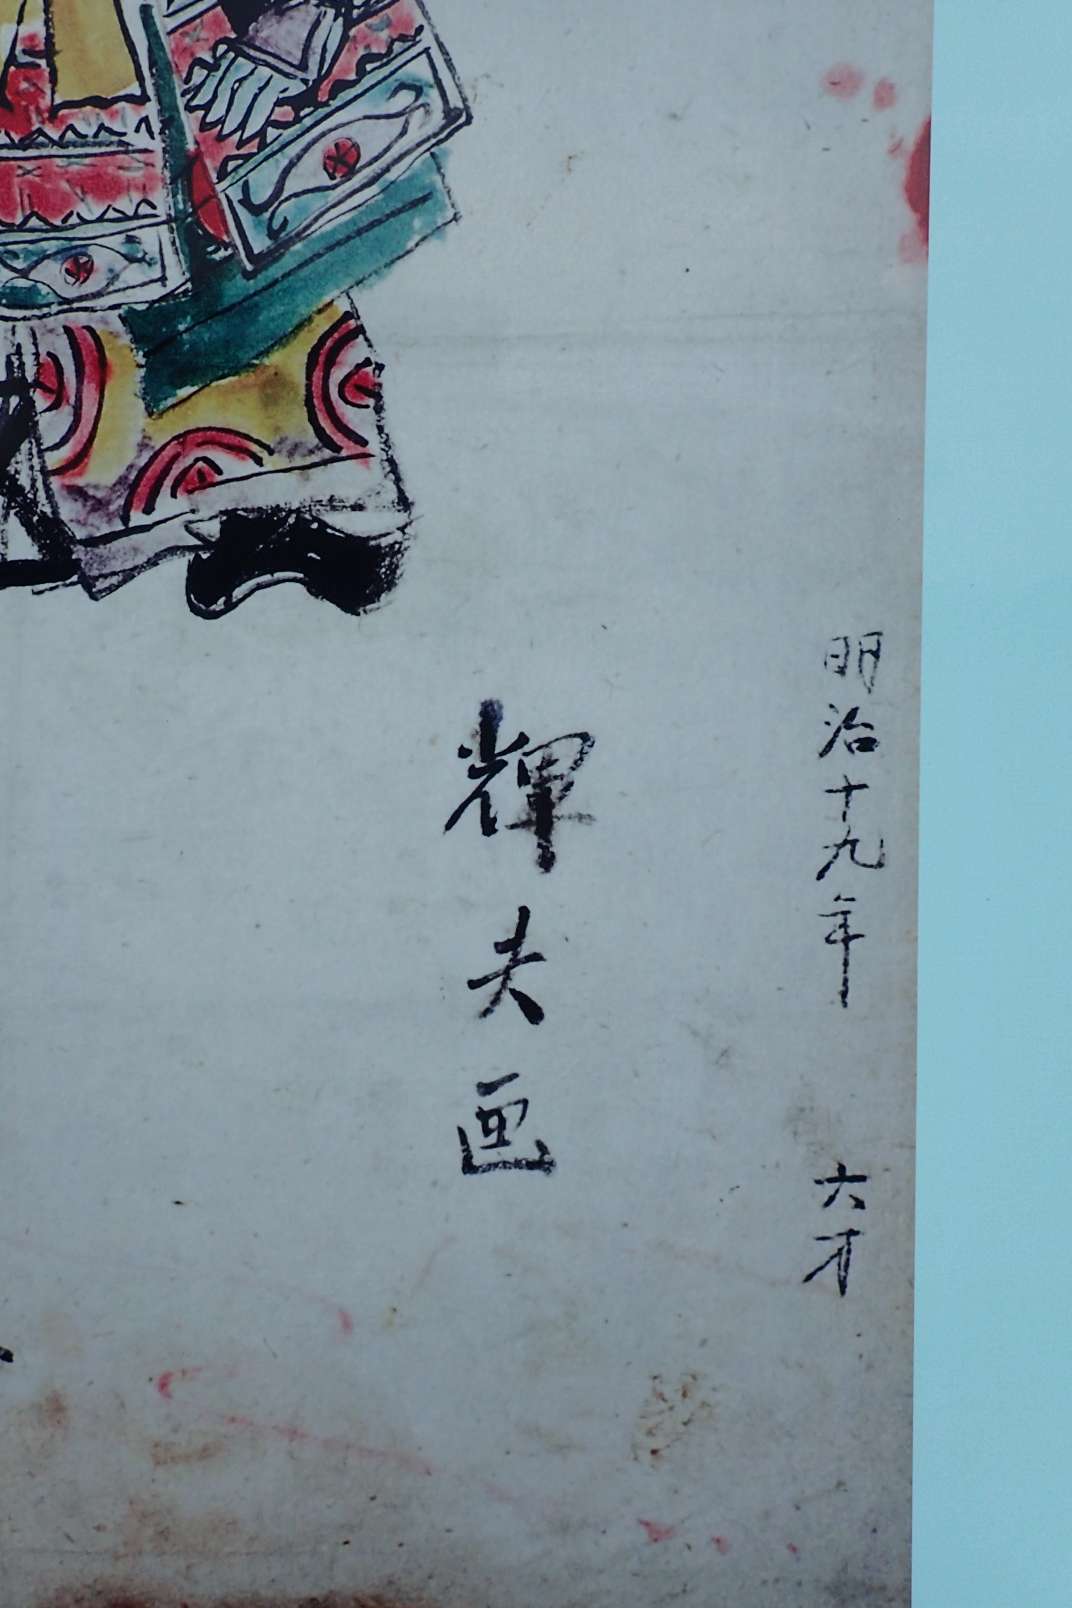 明治十九年 六才
輝夫画